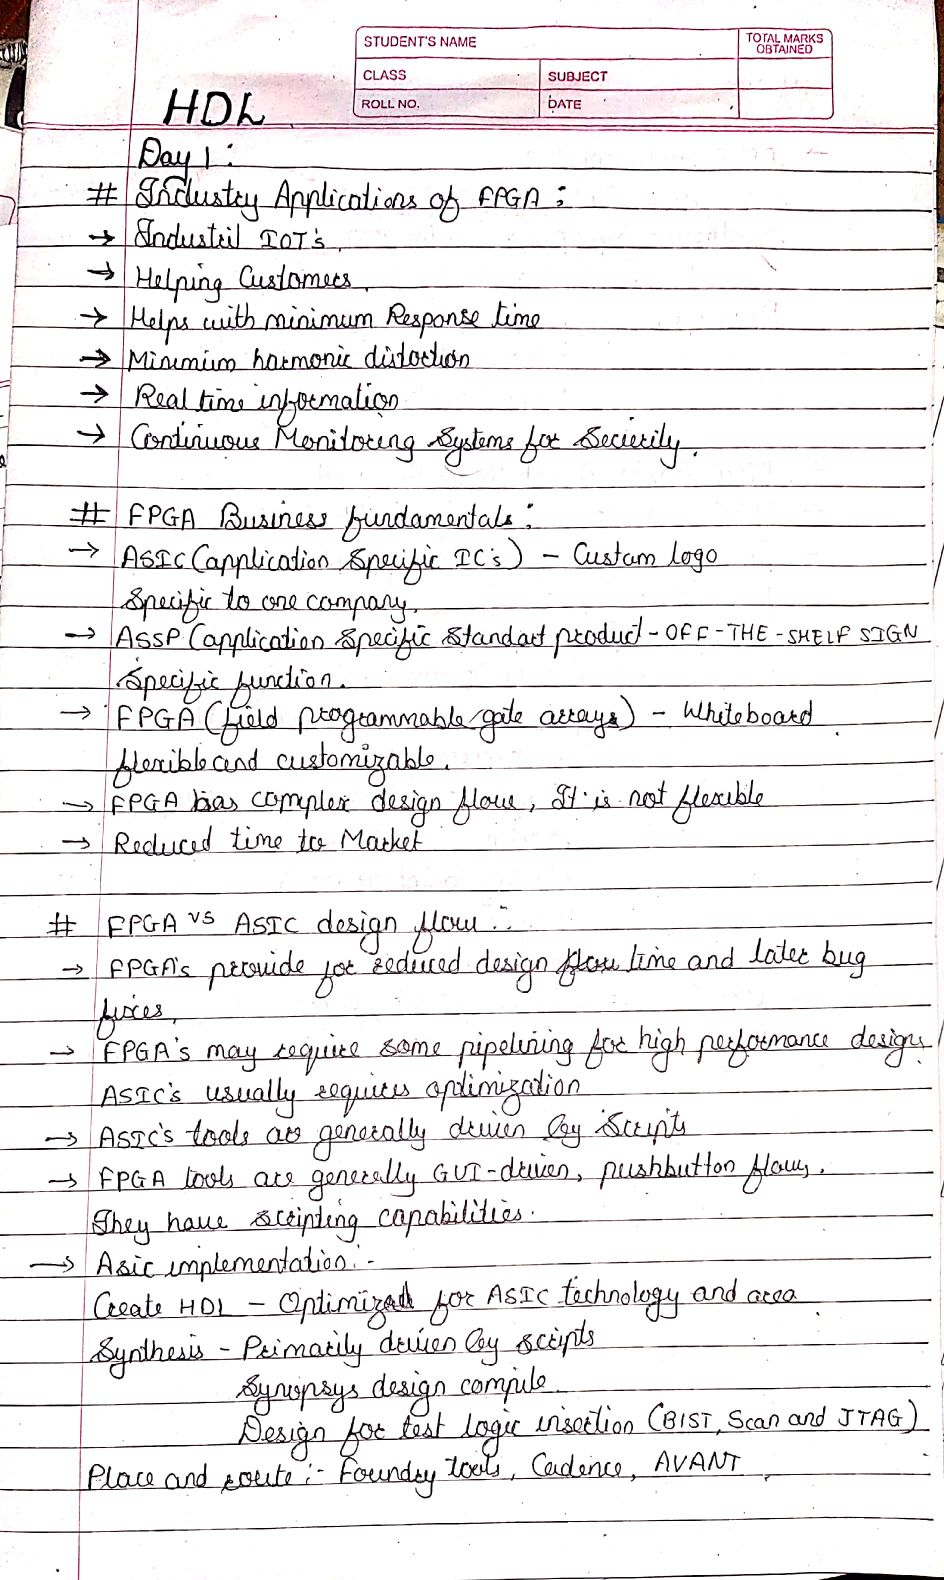 STUDENT'S NAME
TOTAL MARKS OBTAINED
CLASS
SUBJECT
ROLL NO.
DATE
HDL
Day 1:
# Industry Applications of FPGA:
→ Industril IOT's,
→ Helping Customers,
→ Helps with minimum Response time
→ Minimum harmonic distortion
→ Real time information
→ Continuous Monitoring Systems for Secierity.
# FPGA Business fundamentals:
→ ASIC (application Specific IC's) – Custam logo
Specific to one company.
→ ASSP (application Specific Standart product - OFF-THE-SHELF SIGN
Specific function.
→ FPGA (field programmable gate arrays) – Whiteboard
flexible and customizable.
→ FPGA has complex design flow, It is not flexible
→ Reduced time to Market
# FPGA VS ASIC design flow :-
→ FPGA's provide for reduced design flow time and later bug
fixes,
→ FPGA's may require some pipelining for high performance design,
ASIC's usually requires optimization
→ ASIC's tools are generally driven by Scripts
→ FPGA tools are generally GUI-driven, pushbutton flows.
They have scripting capabilities.
→ Asic implementation:-
Create HDL – Optimized for ASIC technology and area
Synthesis – Primarily driven by scripts
Synopsys design compile
Design for test logic insertion (BIST, Scan and JTAG)
Place and route :- Foundry tools, Cadence, AVANT